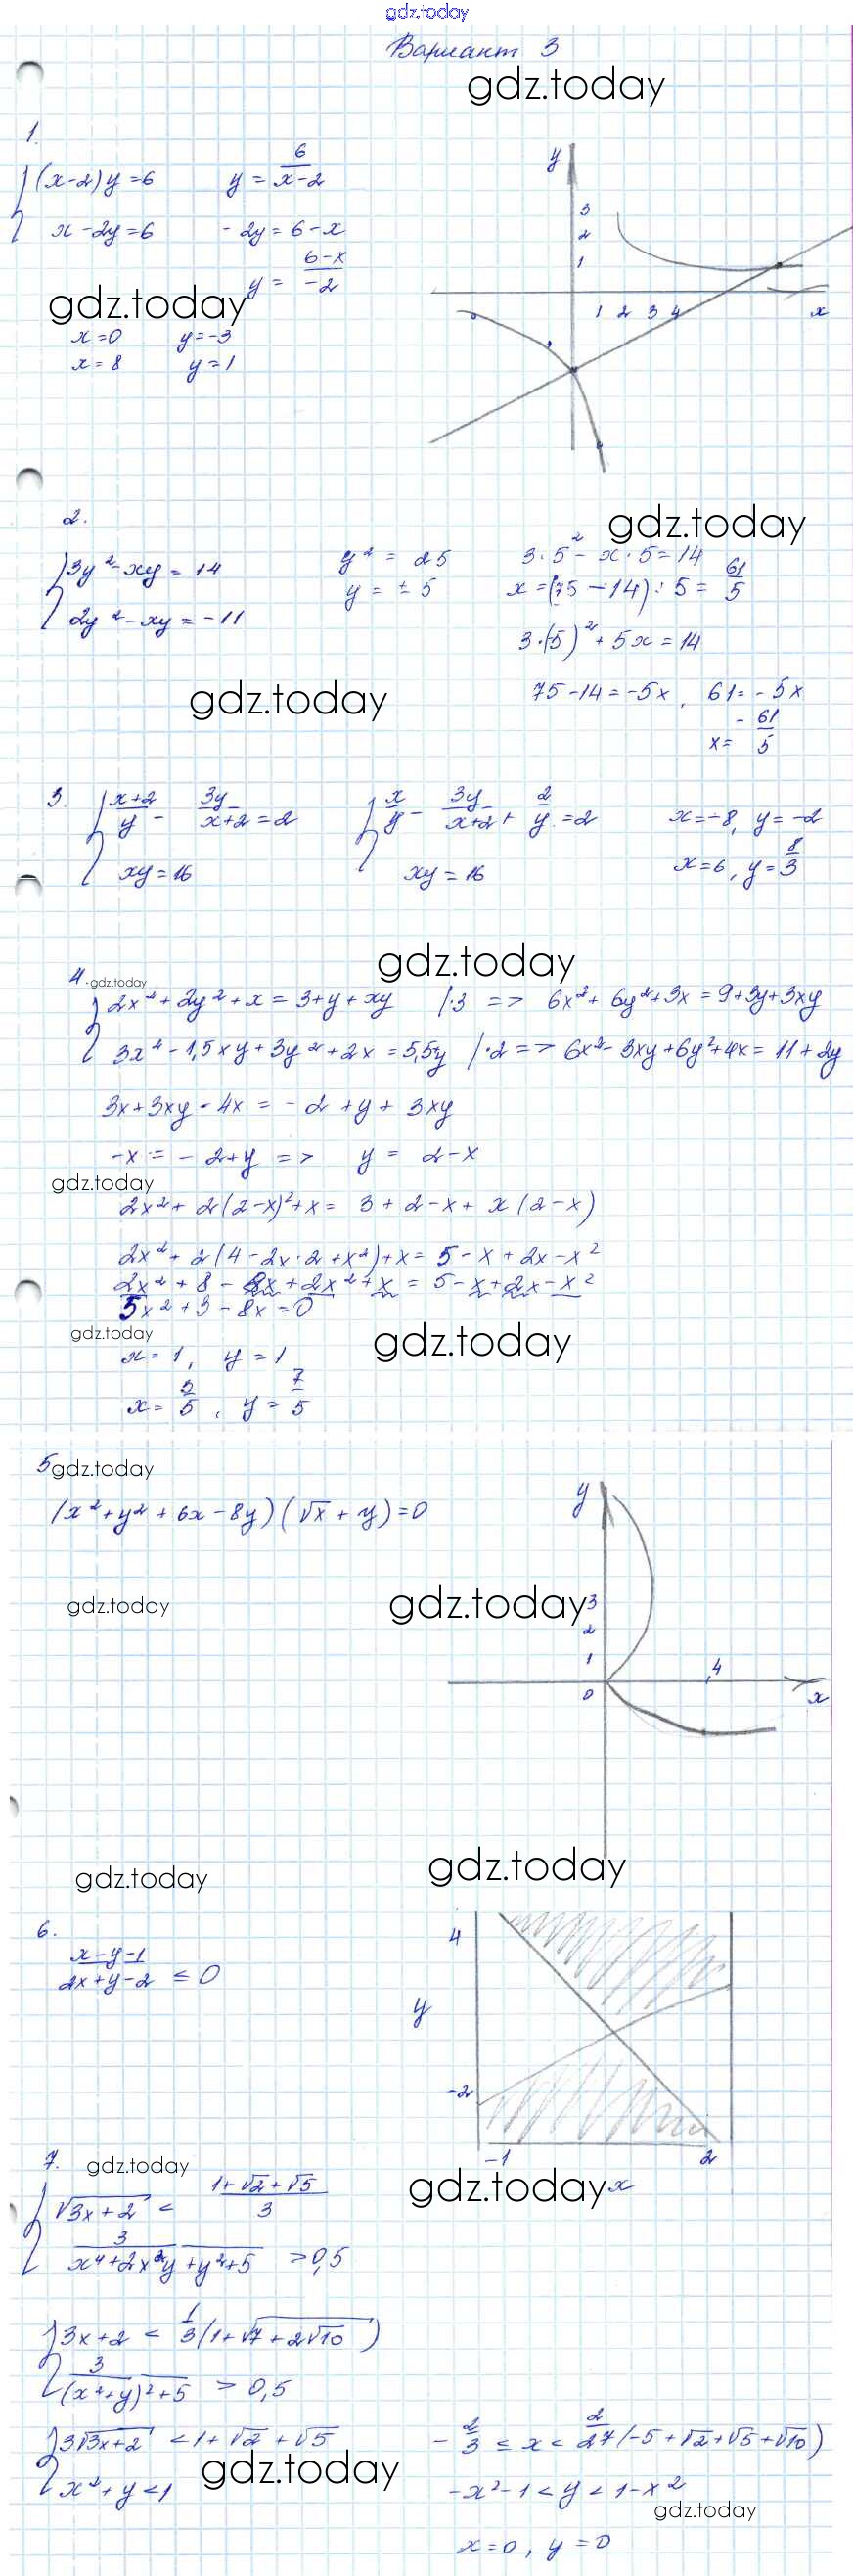 gdz.today
Вариант 3
gdz.today
1.
(x-2)y=6    y = 6/(x-2)
x-2y=6    -2y=6-x
y = (6-x)/(-2)
gdz.today
x=0    y=-3
x=8    y=1
y
3
2
1
1 2 3 4    x
2.
gdz.today
3y²-xy=14    y²=25    3·5²-x·5=14
2y²-xy=-11    y=±5    x=(75-14):5=61/5
3·(-5)²+5x=14
gdz.today
75-14=-5x, 61=-5x
x=-61/5
3.
(x+2)/y - 3y/(x+2) = 2    x/y - 3y/(x+2) + 2/y = 2    x=-8, y=-2
xy=16    xy=16    x=6, y=8/3
gdz.today
4. gdz.today
2x²+2y²+x=3+y+xy    |·3 => 6x²+6y²+3x=9+3y+3xy
3x²-1,5xy+3y²+2x=5,5y    |·2 => 6x²-3xy+6y²+4x=11+2y
3x+3xy-4x=-2+y+3xy
-x=-2+y => y=2-x
gdz.today
2x²+2(2-x)²+x=3+2-x+x(2-x)
2x²+2(4-2x·2+x²)+x=5-x+2x-x²
2x²+8-8x+2x²+x=5-x+2x-x²
5x²+3-8x=0
gdz.today
gdz.today
x=1, y=1
x=3/5, y=7/5
5 gdz.today
(x²+y²+6x-8y)(√x+y)=0
y
gdz.today
gdz.today
3
2
1
4
0    x
gdz.today
gdz.today
6.
(x-y-1)/(2x+y-2) ≤ 0
4
y
-2
-1    2
x
7. gdz.today
gdz.today
√(3x+2) < (1+√2+√5)/3
3/(x⁴+2x²y+y²+5) > 0,5
3x+2 < 1/3(1+√(7+2√10))
3/((x²+y)²+5) > 0,5
3√(3x+2) < 1+√2+√5    -2/3 ≤ x < 2/27(-5+√2+√5+√10)
x²+y<1    -x²-1<y<1-x²
gdz.today
gdz.today
x=0, y=0